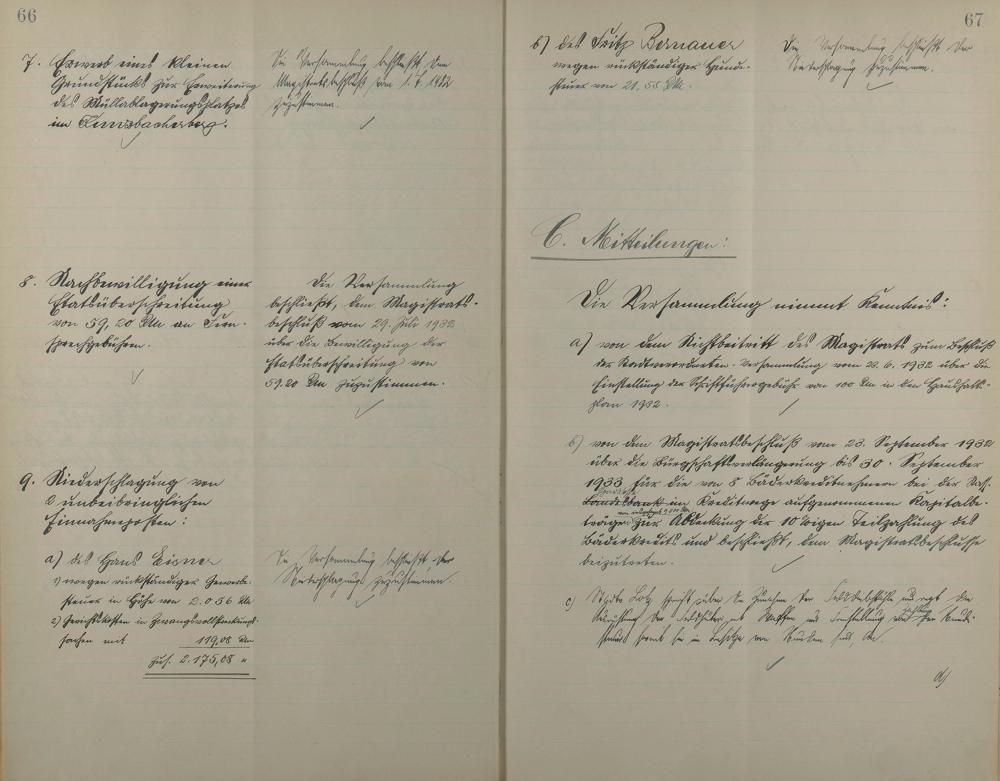 66
7. Erwerb eines kleinen
Grundstücks zur Erweiterung
des Müllablagerungsplatzes
im
Die Versammlung beschließt dem
Magistratsbeschluß vom 1932
zuzustimmen.
8. Nachbewilligung einer
Etatsüberschreitung
von 59,20 RM an Fern-
sprechgebühren.
Die Versammlung
beschließt, dem Magistrats-
beschluß vom 29. Juli 1932
über die Bewilligung der
Etatsüberschreitung von
59.20 RM zuzustimmen.
9. Niederschlagung von
2 unbeibringlichen
Einnahmeposten:
a) des Hans Eisner
1) wegen rückständiger Gewerbe-
steuer in Höhe von 2.056 RM
2) Gerichtskosten in Zwangsvollstreckungs-
sachen mit 119,08 RM
zus. 2.175,08 "
Die Versammlung beschließt, der
Niederschlagung zuzustimmen.
67
b) des Fritz Bernauer
wegen rückständiger Hunde-
steuer von 21.55 RM.
Die Versammlung beschließt der
Niederschlagung zuzustimmen.
C. Mitteilungen:
Die Versammlung nimmt Kenntnis:
a) von dem Nichtbeitritt des Magistrats zum Beschluß
der Stadtverordneten-Versammlung vom 23.6.1932 über die
Einstellung der Schriftführergebühr von 100 RM in den Haushalts-
plan 1932.
b) von dem Magistratsbeschluß vom 23. September 1932
über die Bürgschaftsverlängerung bis 30. September
1933 für die von 8 Bäderkreditnehmern bei der Nass.
Landesbank im Kreditwege aufgenommenen Kapitalbe-
trägen zur Abdeckung der 10%igen Teilzahlung des
Bäderkredits und beschließt, dem Magistratsbeschlusse
beizutreten.
c) Stadtv. über die Zunahme der Felddiebstähle und regt die
der Feldhüter mit Waffen
d)